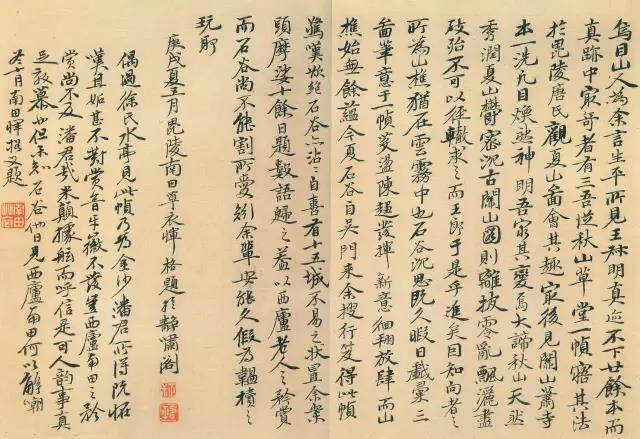 烏目山人為余言生平所見王叔明真迹不下廿餘本而
真跡中最奇者有三吾從秋山草堂一幀悟其法
於毘陵唐氏觀夏山啚會其趣最後見關山蕭寺
本一洗凡目煥然神明吾窮其變焉大諦秋山天然
秀潤夏山鬱密沉古關山圖則離披零亂飄灑盡
致殆不可以徑轍求之而王郎于是乎進矣因知向者之
所為山樵猶在雲霧中也石谷沉思既久暇日戲彙三
啚筆意于一幀滌盪陳趨發揮新意徊翔放肆而山
樵始無餘蘊今夏石谷自吳門來余搜行笈得此幀
驚嘆欲絕石谷亦沾沾自喜有十五城不易之狀置余案
頭摩娑十餘日題數語歸之蓋以西廬老人之矜賞
而石谷尚不能割所愛矧余輩安能久假為韞櫝之
玩耶
庚戌夏五月毘陵南田草衣惲格題於靜嘯閣
偶過徐氏水亭見此幀乃為金沙潘君所得既怪
嘆且妬甚不對賞音牙徽不發豈西廬南田之矜
賞尚不及潘君哉米顛據舷而呼信是可人韵事真
足效慕也但未知石谷他日見西廬南田何以解嘲
冬十月南田惲格又題